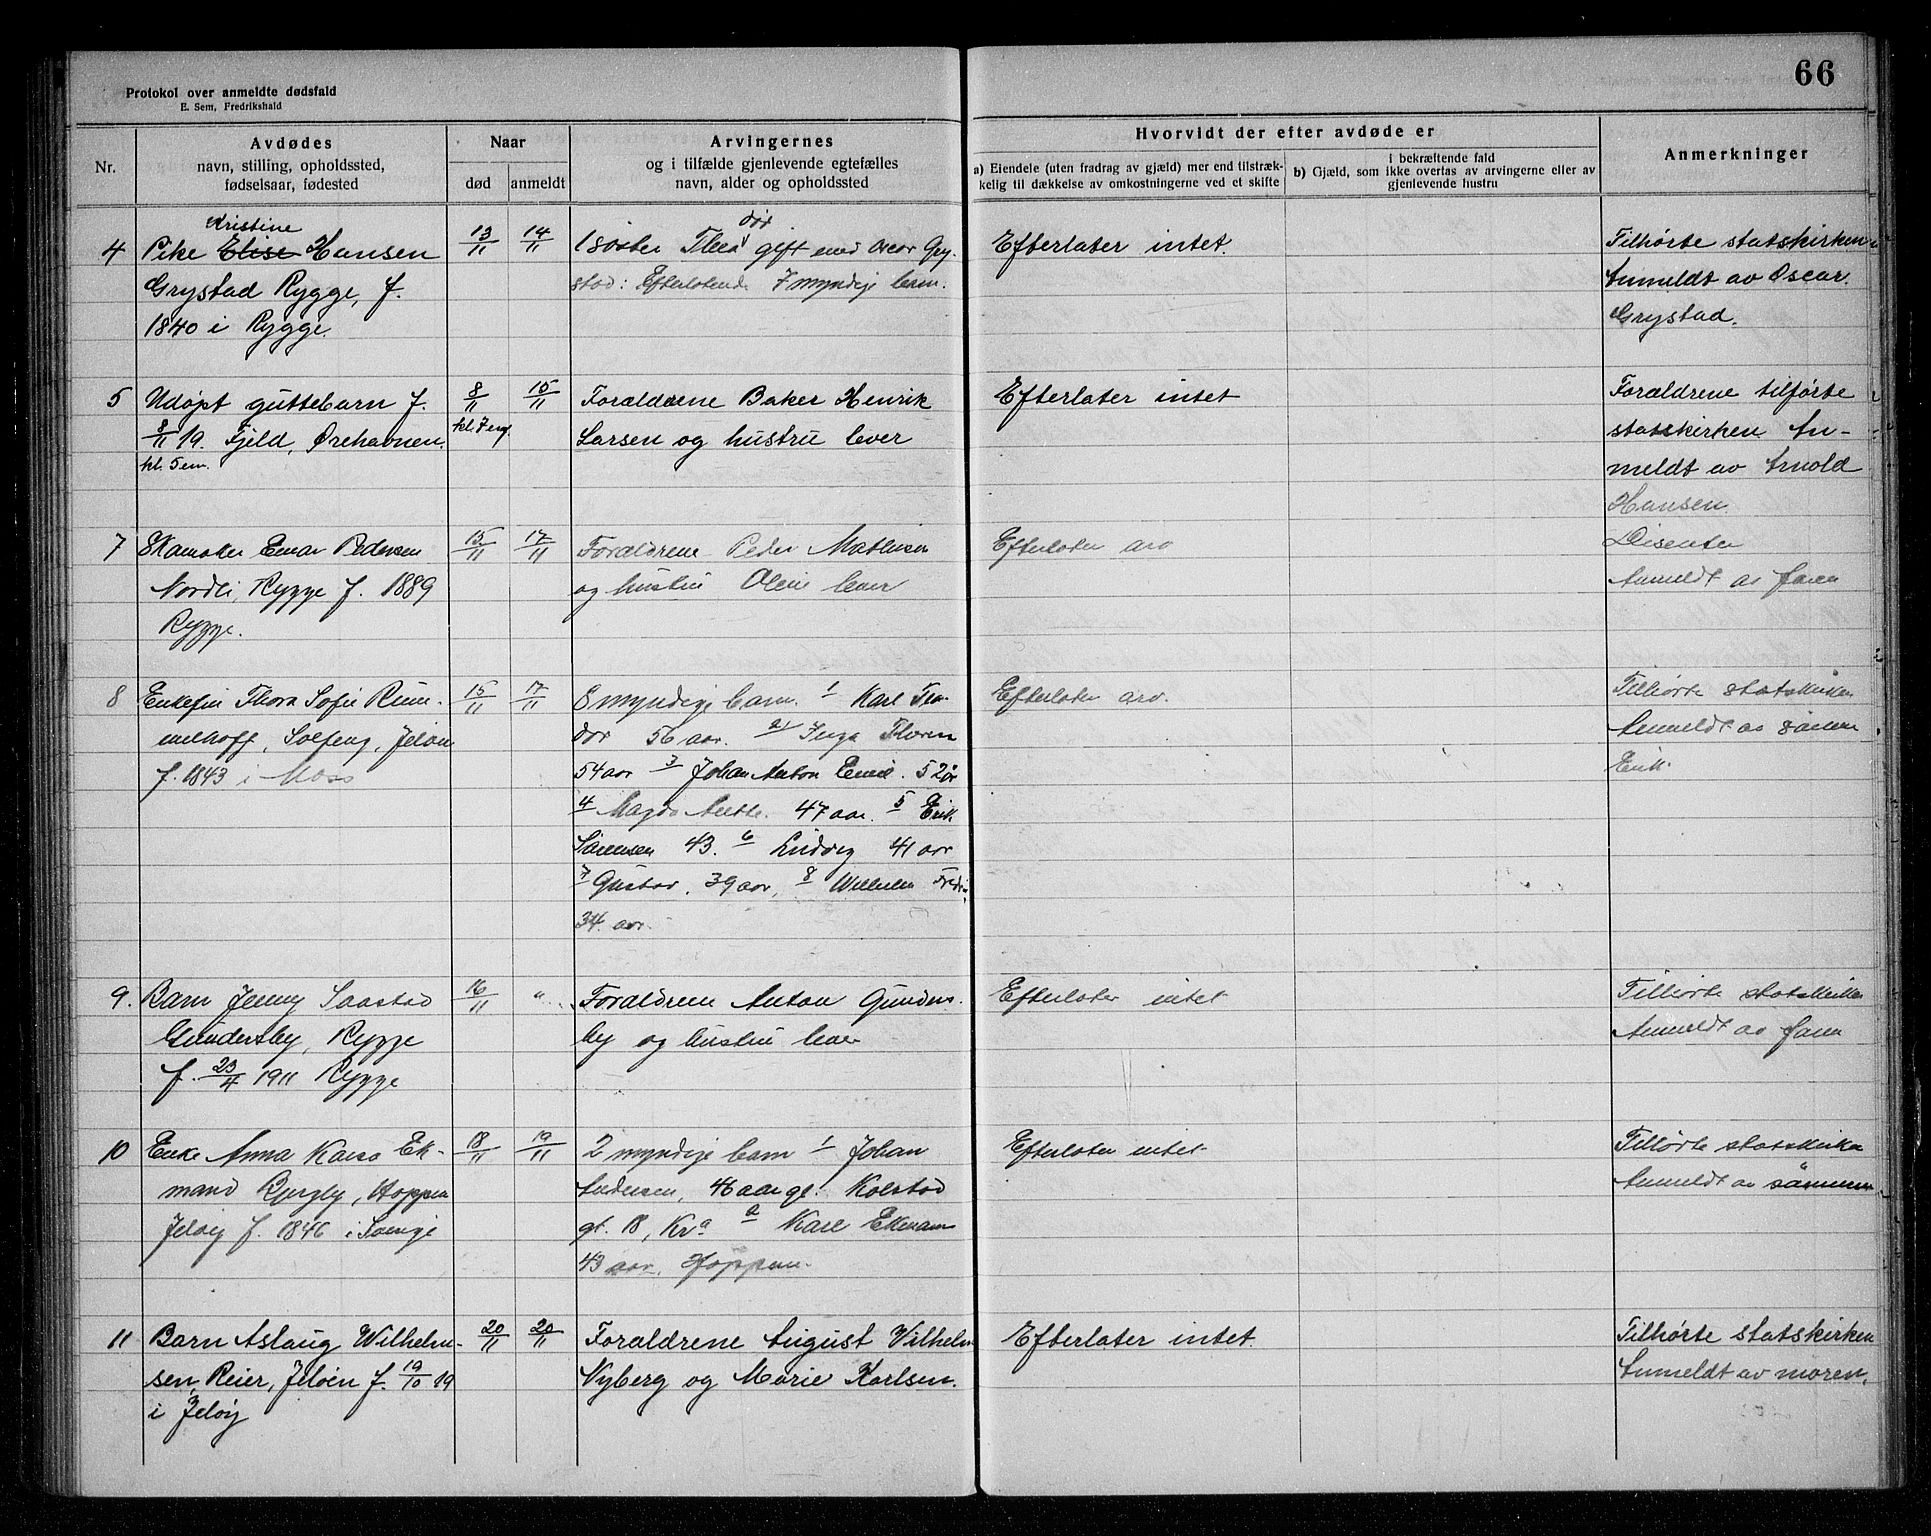 66
Protokol over anmeldte dødsfald
E. Sem, Fredrikshald
Nr.
Avdødes
navn, stilling, opholdssted,
fødselsaar, fødested
Naar
død
anmeldt
Arvingernes
og i tilfælde gjenlevende egtefælles
navn, alder og opholdssted
Hvorvidt der efter avdøde er
a) Eiendele (uten fradrag av gjæld) mer end tilstræk-
kelig til dækkelse av omkostningerne ved et skifte
i bekræftende fald
b) Gjæld, som ikke overtas av arvingerne eller av
gjenlevende hustru
Anmerkninger
4
Kristine
Pike Elise Hansen
Grystad Rygge, f.
1840 i Rygge.
13/11
14/11
død
1 søster Thea gift med Oscar Gry-
stad: Efterlatende 7 myndige barn.
Efterlater intet.
Tilhørte statskirken
Anmeldt av Oscar
Grystad.
5
Udøpt guttebarn f.
8/11 19. Fjeld, Ørehavnen.
kl. 5 em.
8/11
kl. 7 em.
15/11
Forældrene Baker Henrik
Larsen og hustru lever
Efterlater intet
Forældrene tilhørte
statskirken An-
meldt av Arnold
Hansen.
7
Skomaker Einar Pedersen
Nordli, Rygge f. 1889
Rygge.
15/11
17/11
Forældrene Peder Mathisen
og hustru Oline lever
Efterlater arv
Disenter
Anmeldt av faren
8
Enkefru Thora Sofie Rum-
melhoff, Solheng, Jeløen
f. 1843 i Moss
15/11
17/11
8 myndige barn. 1 Karl Theo-
dor 56 aar. 2/ Inga Thoren
54 aar 3 Johan Anton Emil. 52 år
4 Magda Anette. 47 aar. 5 Erik
Sørensen 43. 6 Ludvig 41 aar
7 Gustav, 39 aar, 8 Wilhelm Fredr.
34 aar.
Efterlater arv.
Tilhørte statskirken
Anmeldt av sønnen
Erik.
9.
Barn Jenny Saastad
Gundersby, Rygge
f. 23/4 1911 Rygge
16/11
"
Forældrene Anton Gunders-
by og hustru lever
Efterlater intet
Tilhørte statskirken
Anmeldt av faren
10
Enke Anna Kaisa Ek-
mand Bjergby, Hoppen
Jeløy f. 1846 i Sverige
18/11
19/11
2 myndige barn 1 Johan
Andersen, 46 aar gl. Kolstad
gt. 18, Kra 2 Karl Ekman
43 aar, Hoppen.
Efterlater intet
Tilhørte statskirken
Anmeldt av sønnen
11
Barn Aslaug Wilhelm-
sen, Reier, Jeløen f. 19/10 19
i Jeløy
20/11
20/11
Forældrene August Vilhelm
Nyberg og Marie Karlsen.
Efterlater intet.
Tilhørte statskirken
Anmeldt av moren.